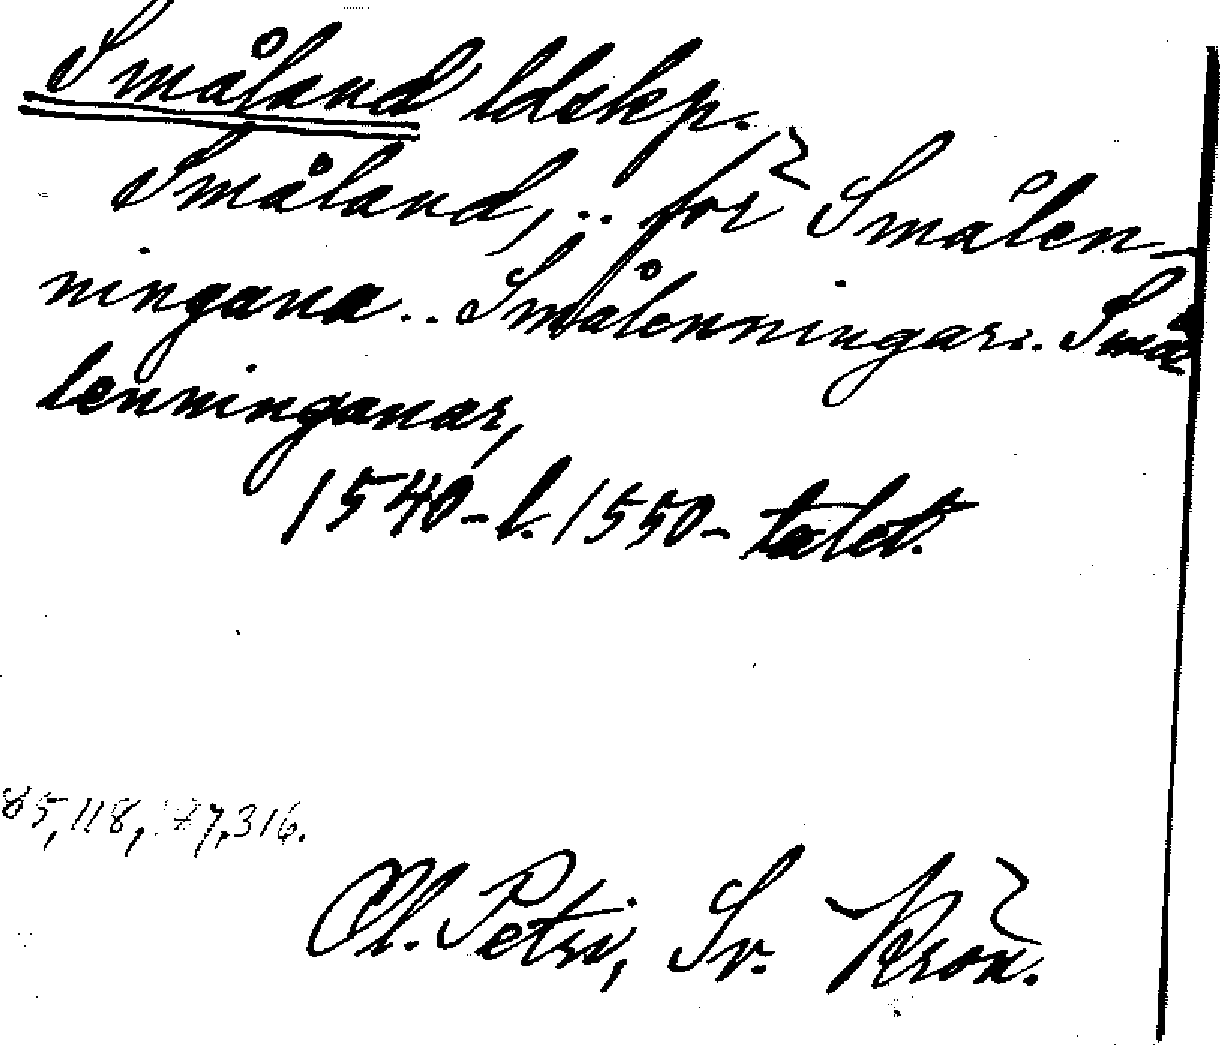 Småland ldskp.
Småland, .. för Smålen-
ningana .. Smålenningar .. Små
lenninganar,
1540- l. 1550-talet.
85, 118, 316.
Ol. Petri, Sv. Krön.